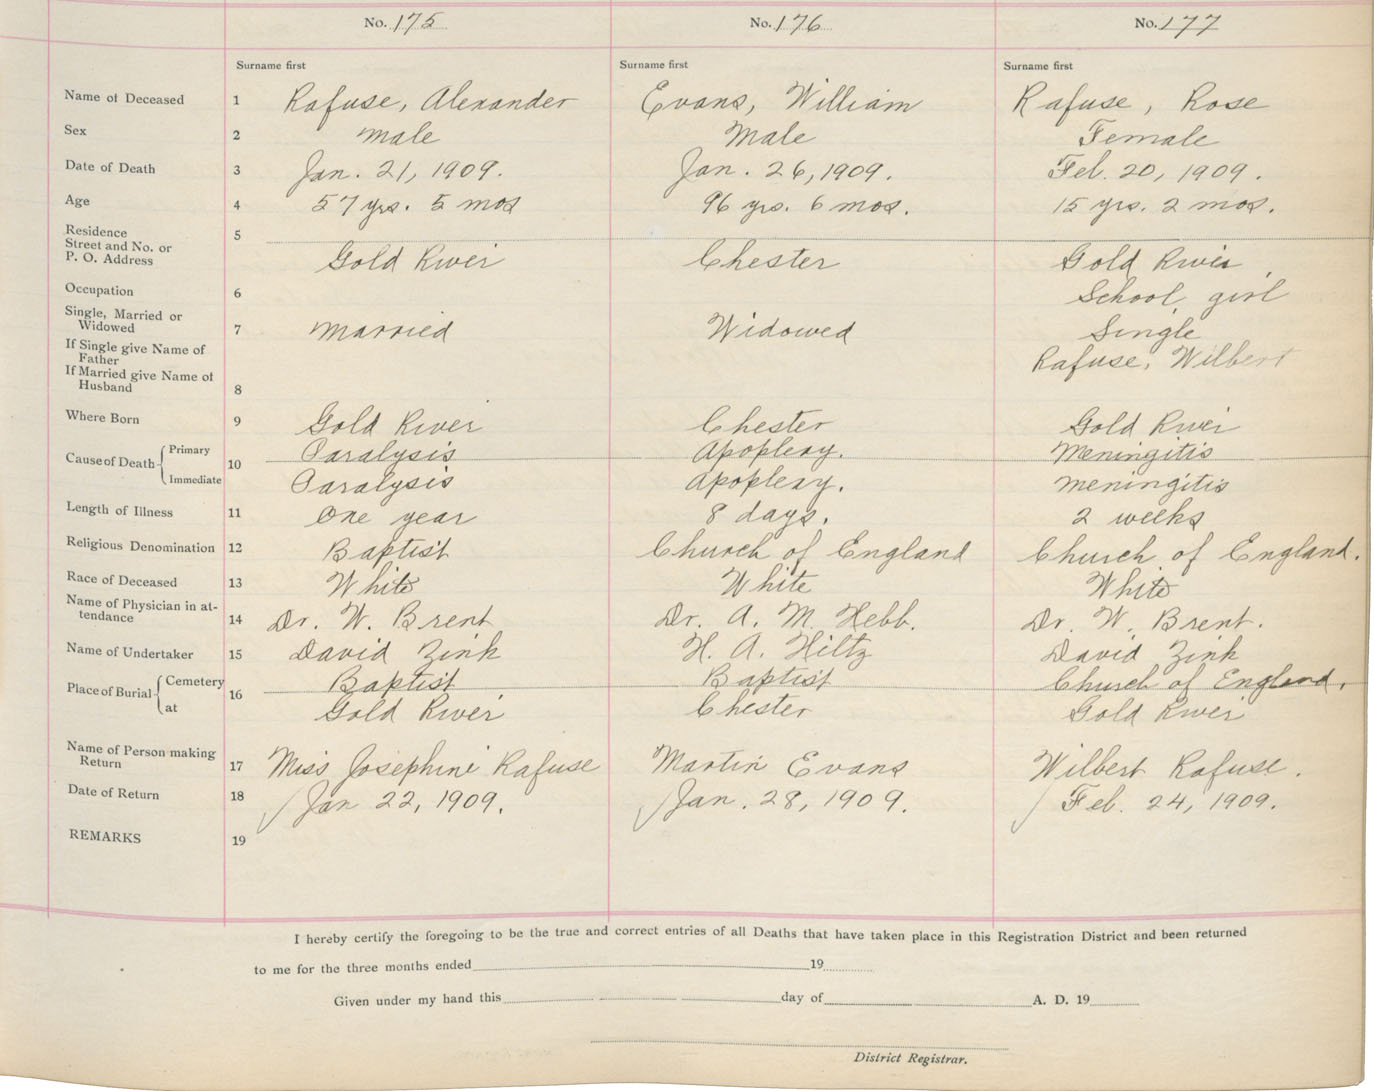 No. 175 No. 176 No. 177
Surname first Surname first Surname first
Name of Deceased 1 Rafuse, Alexander Evans, William Rafuse, Rose
Sex 2 male Male Female
Date of Death 3 Jan. 21, 1909. Jan. 26, 1909. Feb. 20, 1909.
Age 4 57 yrs. 5 mos 96 yrs. 6 mos. 15 yrs. 2 mos.
Residence 5
Street and No. or
P. O. Address Gold River Chester Gold River
Occupation 6 School girl
Single, Married or
Widowed 7 married Widowed Single
If Single give Name of
Father Rafuse, Wilbert
If Married give Name of
Husband 8
Where Born 9 Gold River Chester Gold River
Cause of Death 10 Primary Paralysis Apoplexy. Meningitis
Immediate Paralysis Apoplexy. meningitis
Length of Illness 11 One year 8 days. 2 weeks
Religious Denomination 12 Baptist Church of England Church of England.
Race of Deceased 13 White White White
Name of Physician in at-
tendance 14 Dr. W. Brent Dr. A. M. Hebb. Dr. W. Brent.
Name of Undertaker 15 David Zink H. A. Hiltz David Zink
Place of Burial 16 Cemetery Baptist Baptist Church of England.
at Gold River Chester Gold River
Name of Person making
Return 17 Miss Josephine Rafuse Martin Evans Wilbert Rafuse.
Date of Return 18 Jan 22, 1909. Jan. 28, 1909. Feb. 24, 1909.
REMARKS 19
I hereby certify the foregoing to be the true and correct entries of all Deaths that have taken place in this Registration District and been returned
to me for the three months ended 19
Given under my hand this day of A. D. 19
District Registrar.